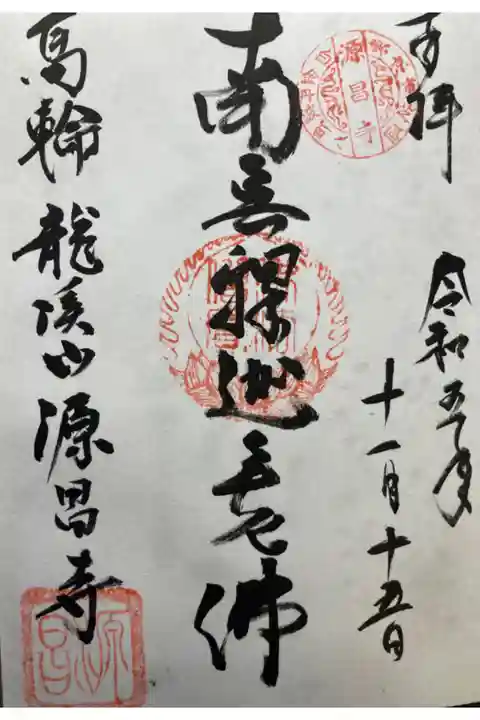 奉拝
令和五年
十一月十五日
源昌寺
南無釋迦牟尼佛
高輪 龍渓山 源昌寺
源昌